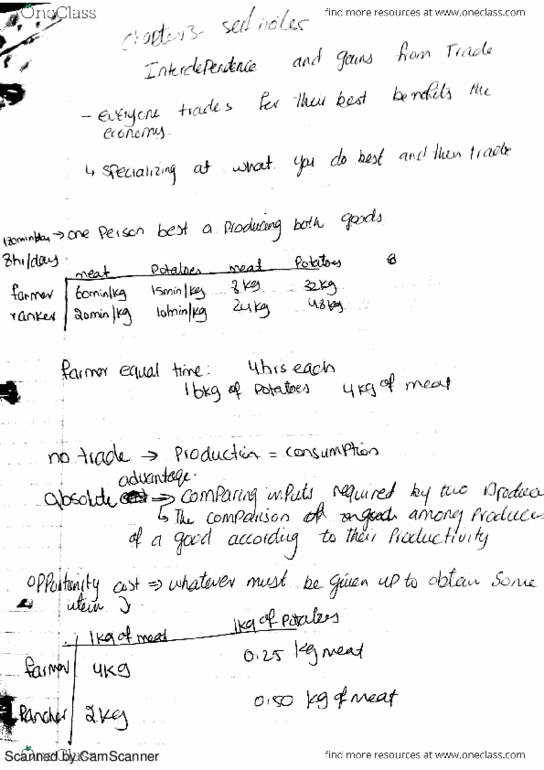 OneClass
find more resources at www.oneclass.com
chapter 3- self notes
Interdependence and gains from Trade
- everyone trades for their best benefits the
economy.
↳ specializing at what you do best and then trade
→ one person best a producing both goods
8hr/days.
meat Potatoes meat Potatoes 8
farmer 60min/kg 15min/kg 8kg 32kg
rancher 20min/kg 10min/kg 24kg 48kg
farmer equal time: 4hrs each
16kg of potatoes 4kg of meat
no trade → Production = consumption
advantage.
absolute ⇒ comparing inputs required by two Produce
↳ The comparison of among Produce
of a good according to their Productivity
opportunity cost ⇒ whatever must be given up to obtain some
item
1kg of meat 1kg of potatoes
farmer 4kg 0.25 kg meat
Rancher 2kg 0.50 kg of meat
Scanned by CamScanner
find more resources at www.oneclass.com